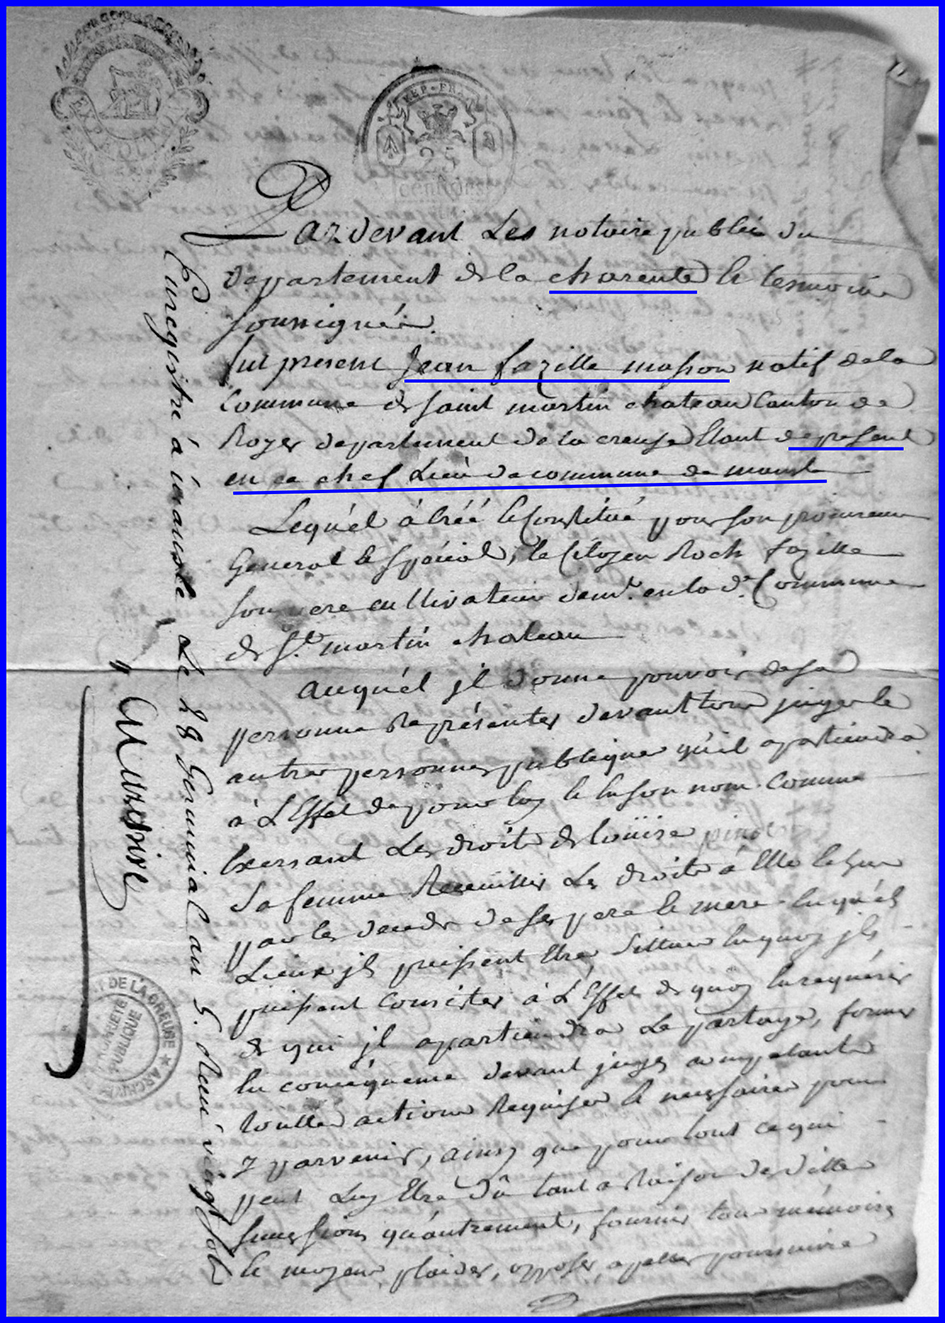 REP. FRA
centimes
Pardevant Les notaire public du
departement de la charente le temoins
soussignés.
fut present Jean fazille masson natif de la
Commune de saint martin chateau Canton de
Royer departement de la creuse Etant de present
en ce chef Lieu de commune de mansle
Lequél à créé & Constitué pour son procureur
Général & Spécial, le Citoyen Roch fazille
son pere cultivateur dem.t en la d.te Commune
de S.t martin chateau
auquél jl donne pouvoir de sa
personne Représenter devant tous juges &
autres personnes publique qu'il apartiendra
à L'Effet de pour luy & En son nom comme
Exersant Les droits de
Sa femme Receuillir Les droits à Elle Echus
par les deceds de ses pere & mere Enquéls
Lieux jls puissent Etre Situés En quoy jls
puissent Concister à L'Effet de quoy En requérir
de qui jl apartiendra Le partage, former
En concéquence devant juges competants
toutte actions Requise & necessaire pour
y parvenir, ainsy que pour tout ce qui
peut Luy Etre Dû tant a Raison de ditte
succession qu'autrement, fournir tous mémoires
& moyens plaider, opposer, apeller poursuivre
Enregistré à mansle Le 28 Germinal an 5. Reçu vingt sols
DE LA CREUSE ★ ARCHIVES
PUBLIQUE